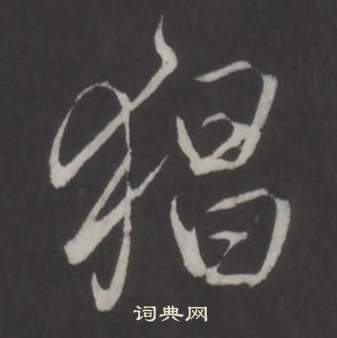 猖
词典网